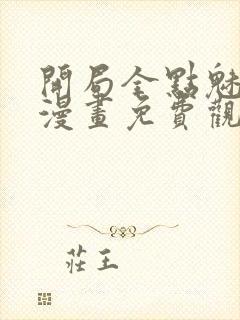 開局全點魅
漫畫免費觀
莊王